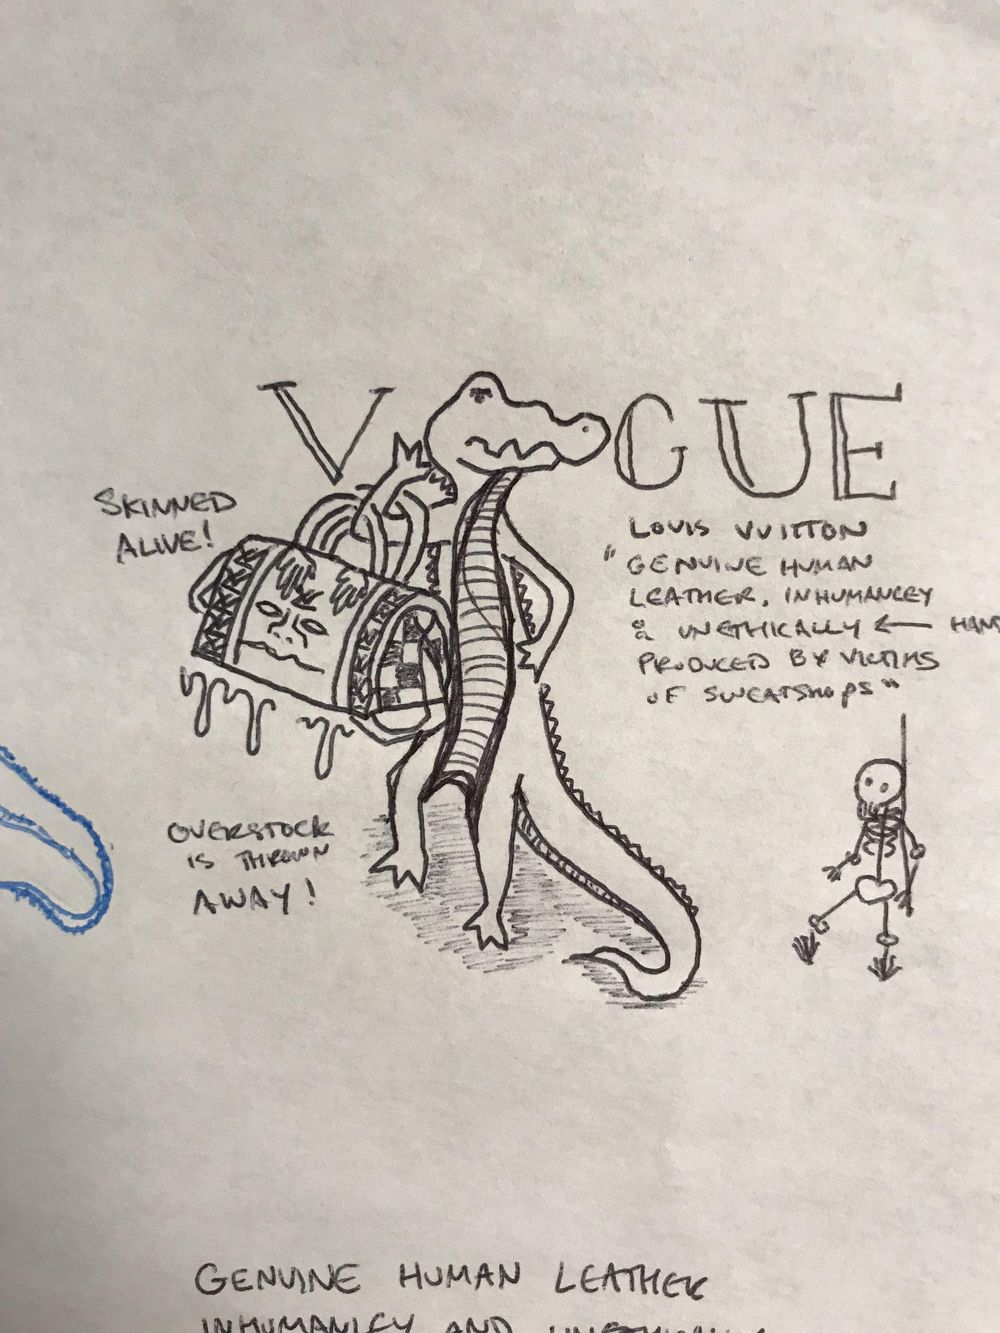 V GUE
SKINNED
ALIVE!
LOUIS VUITTON
"GENUINE HUMAN
LEATHER, INHUMANLEY
& UNETHICALLY ← HAN
PRODUCED BY VICTIMS
OF SWEATSHOPS"
OVERSTOCK
IS THROWN
AWAY!
GENUINE HUMAN LEATHER
AND UNETHICALLY